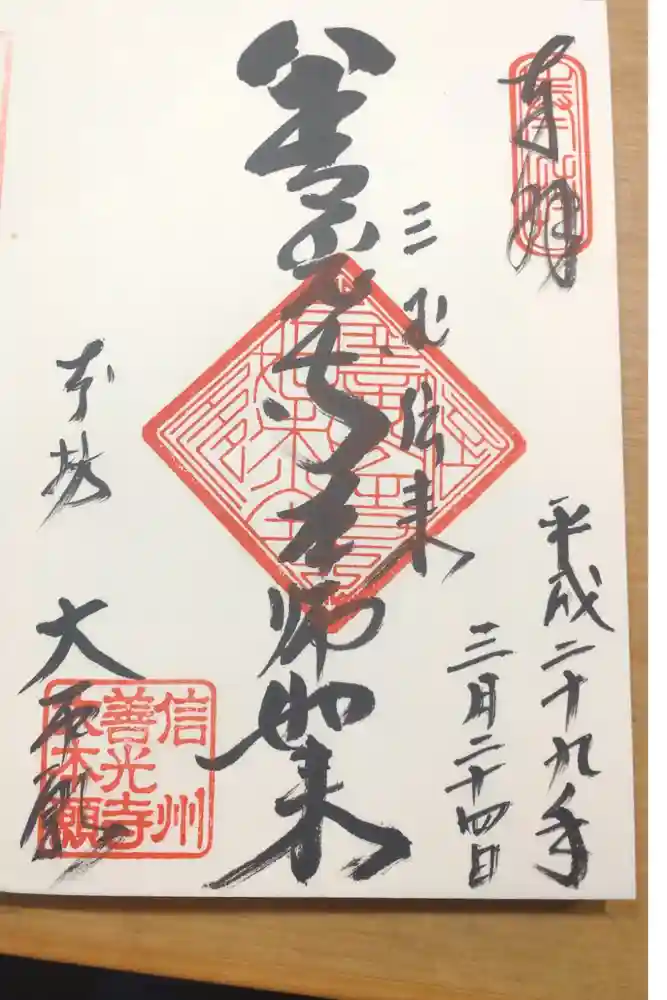 奉拝
奉拝
平成二十九年
三月二十四日
三国伝来
善光寺本師如来
大本願
信州
善光寺
大本願